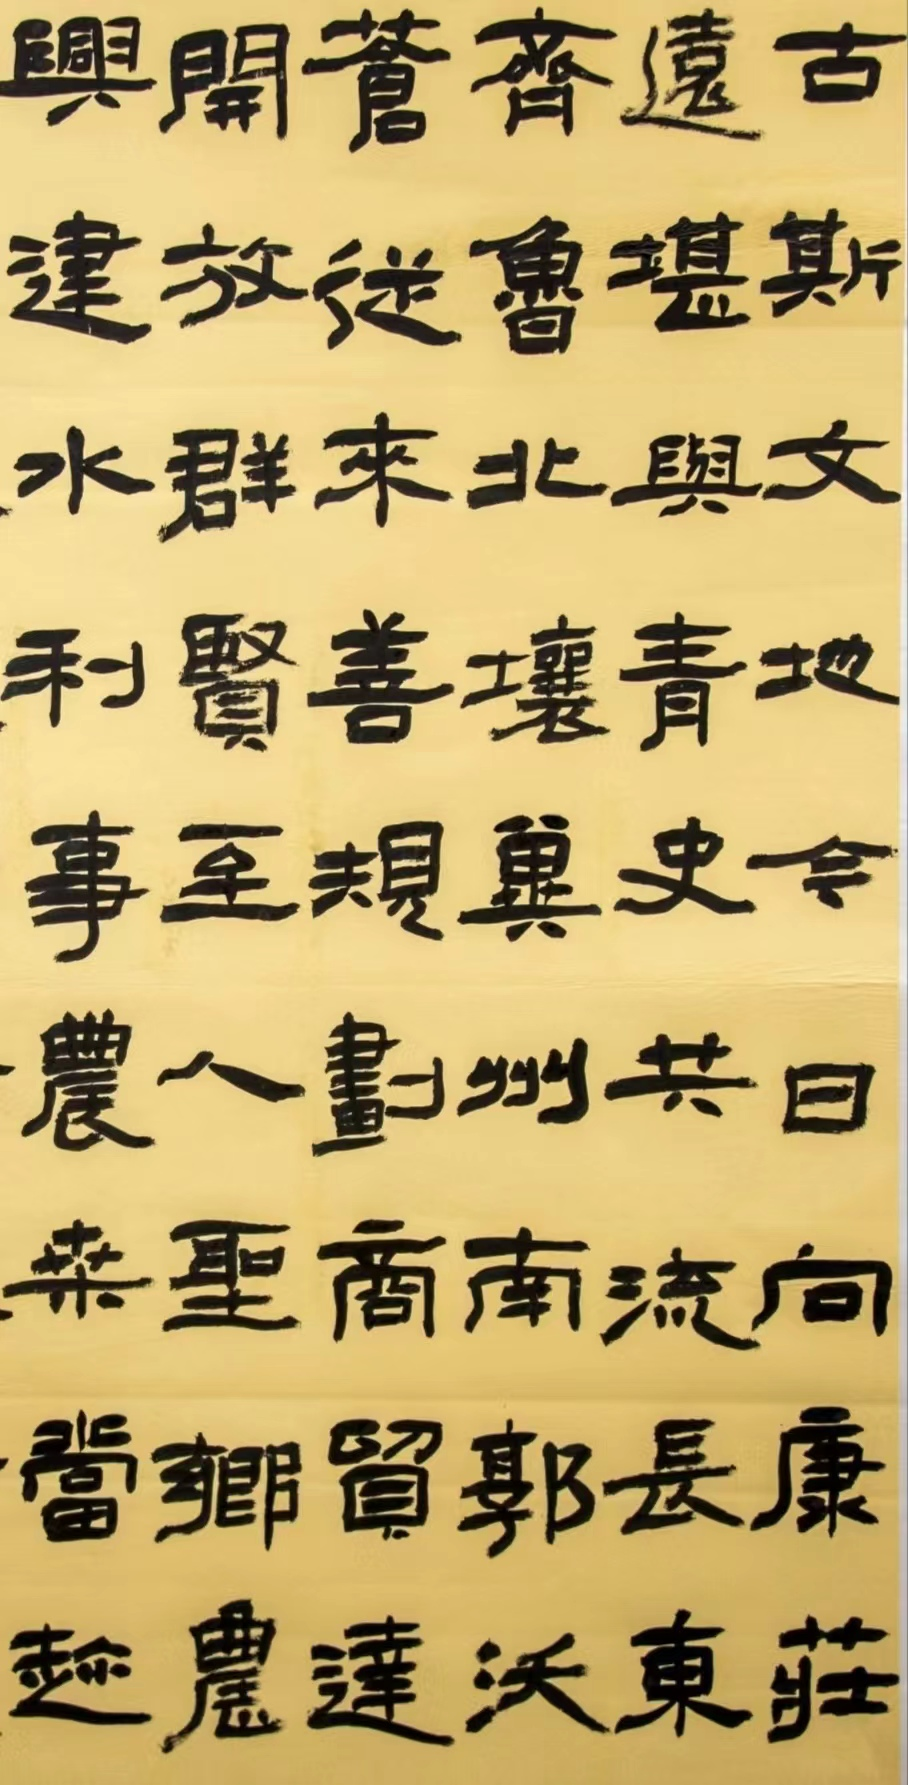 古斯文地今日向康莊
遠堪與青史共流長東
齊魯北壤冀州南郭沃
蒼從來善規劃商貿達
開放群賢至人聖鄉農
興建水利事農桑當趁